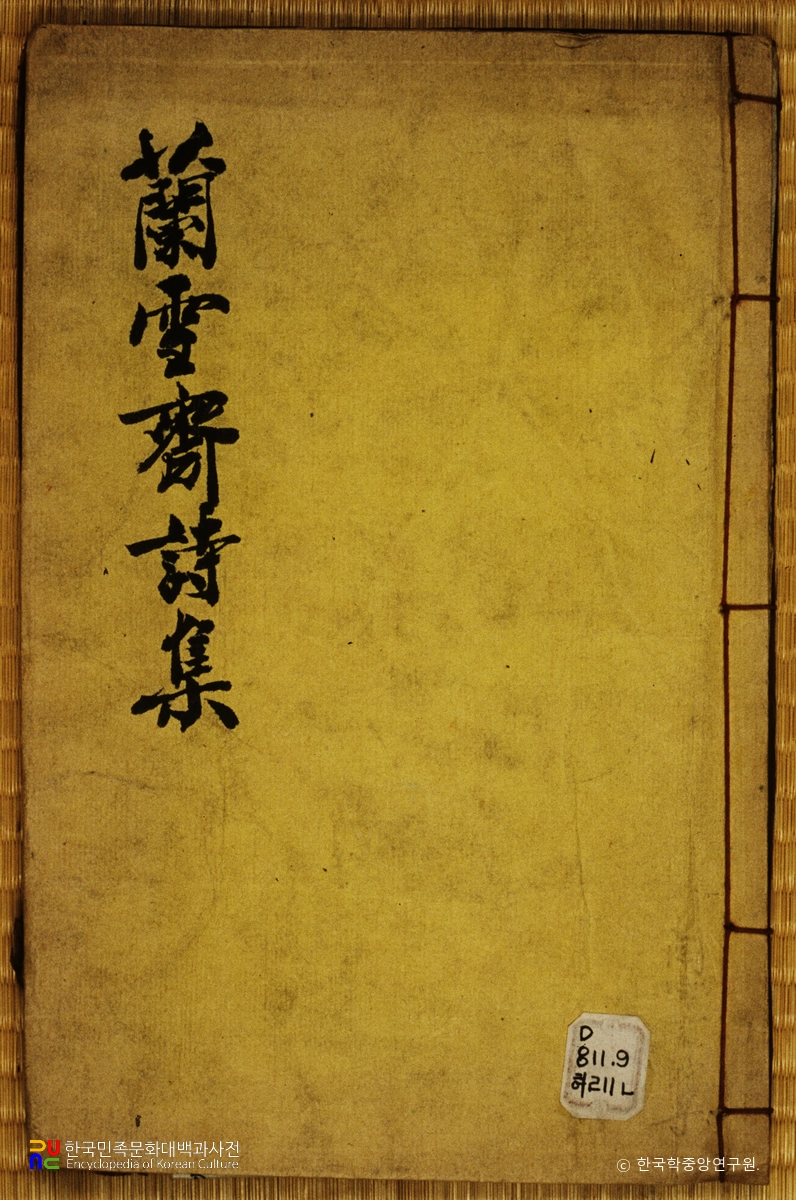 蘭雪齋詩集
D
811.9
허211ㄴ
한국민족문화대백과사전
Encyclopedia of Korean Culture
ⓒ 한국학중앙연구원.